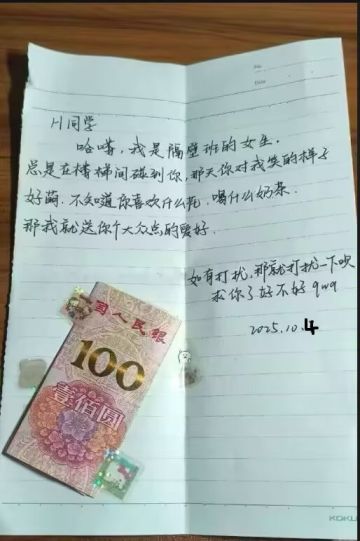 File
Date
H同学
哈喽,我是隔壁班的女生.
总是在楼梯间碰到你,那天你对我笑的样子
好萌.不知道你喜欢什么花,喝什么奶茶.
那我就送你个大众点的爱好.
如有打扰,那就打扰一下呗
求你了好不好qwq
2025.10.4
国人民银
100
壹佰圆
KOKU